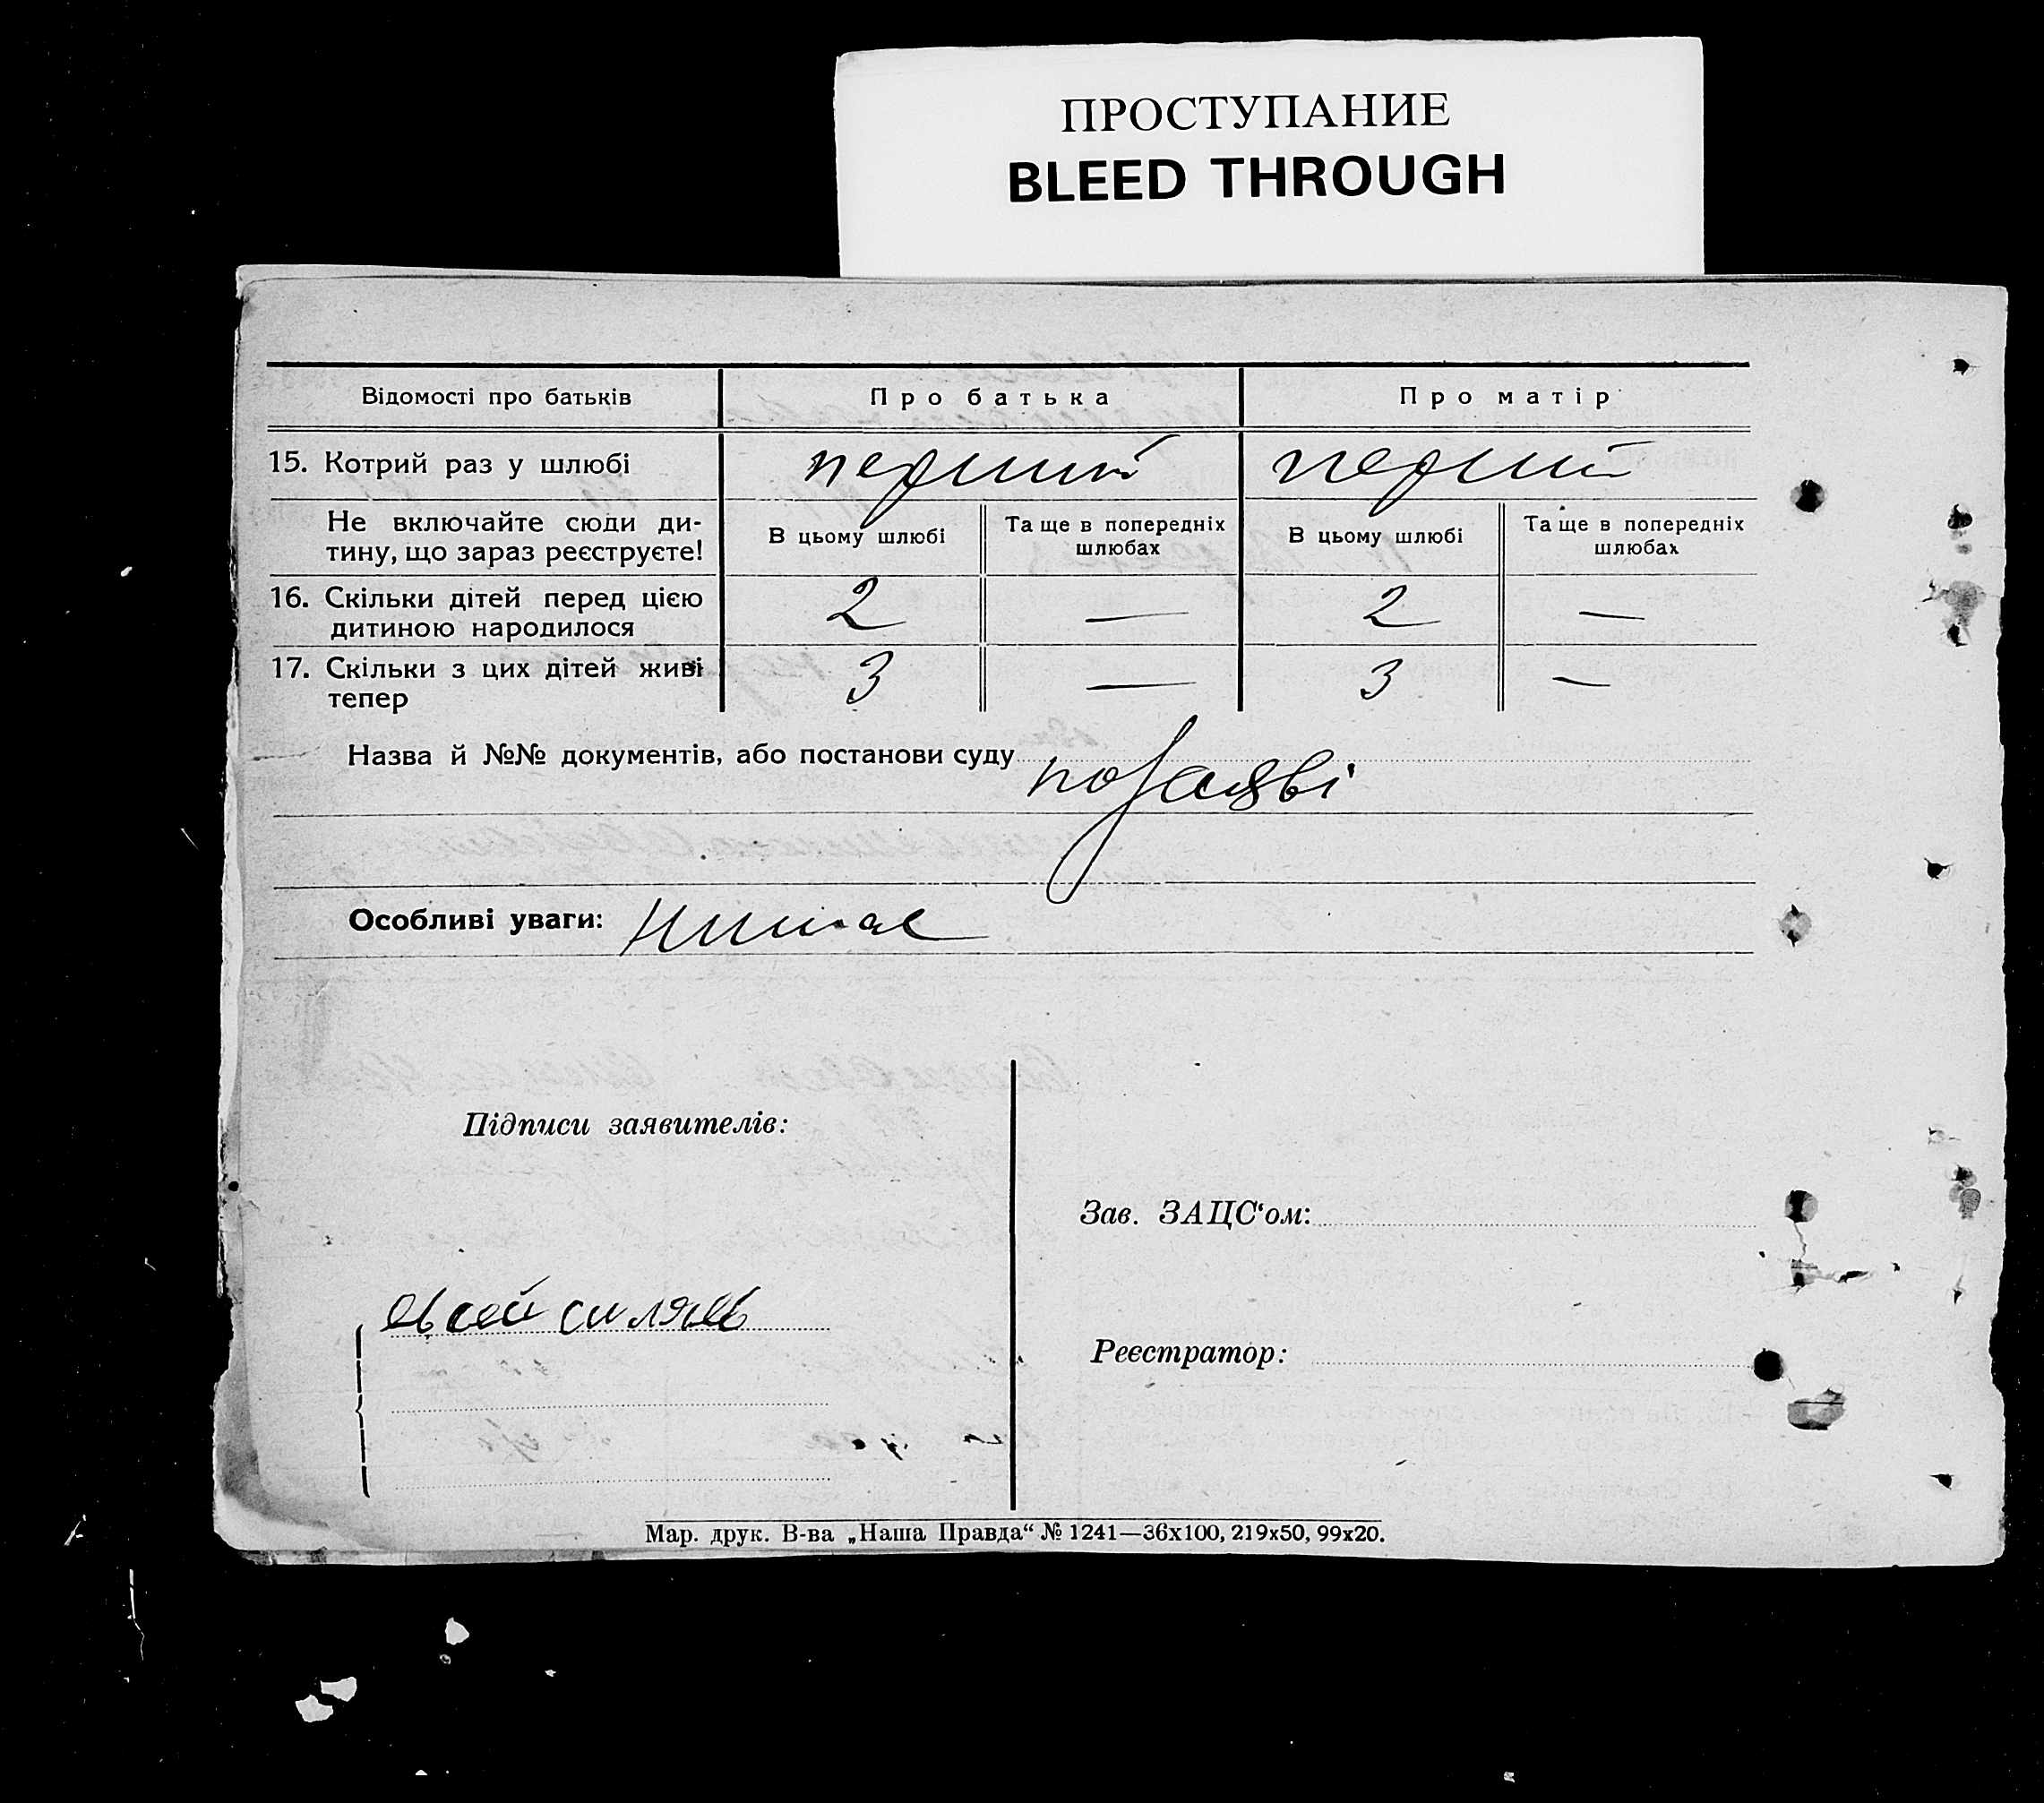 ПРОСТУПАНИЕ
BLEED THROUGH
Відомості про батьків Про батька Про матір
15. Котрий раз у шлюбі перший перший
Не включайте сюди ди-
тину, що зараз реєструєте!
В цьому шлюбі Та ще в попередніх шлюбах В цьому шлюбі Та ще в попередніх шлюбах
16. Скільки дітей перед цією
дитиною народилося 2 — 2 —
17. Скільки з цих дітей живі
тепер 3 — 3 —
Назва й №№ документів, або постанови суду по заяві
Особливі уваги: немає
Підписи заявителів:
Зав. ЗАЦС‘ом:
Реєстратор:
Мар. друк. В-ва „Наша Правда“ № 1241—36х100, 219х50, 99х20.